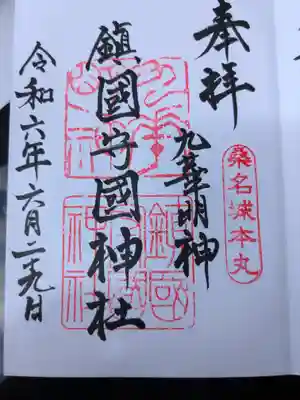 奉拝
桑名城本丸
九華明神
鎮國守國神社
令和六年六月二十九日